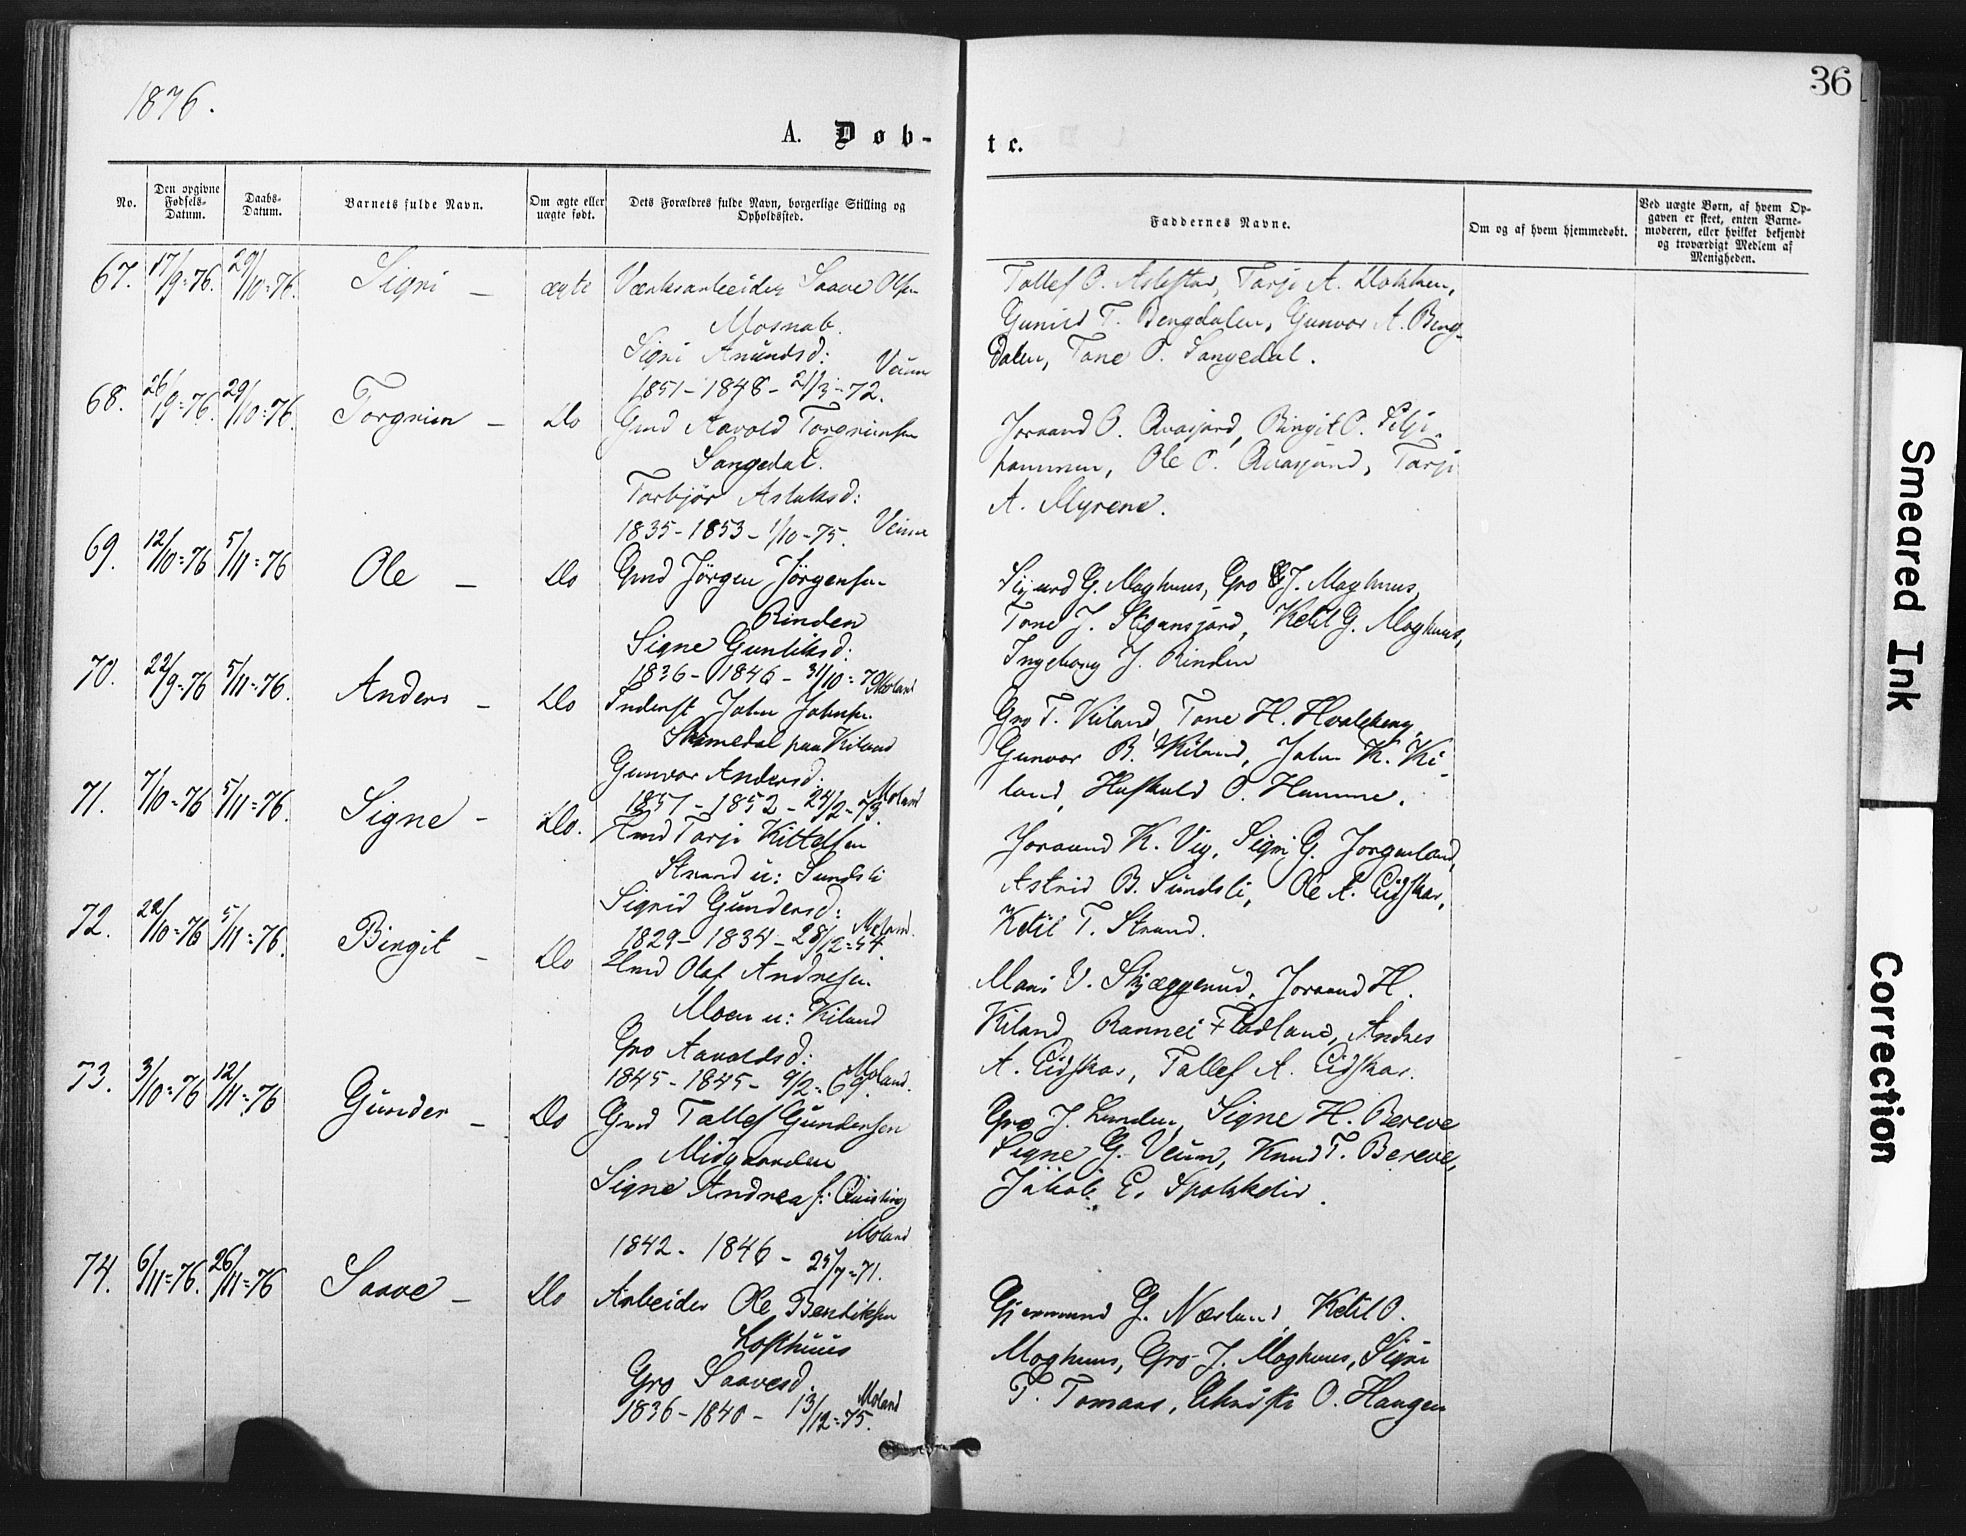 36
1876.
A. Døb-
te.
No.
Den opgivne Fødsels-Datum.
Daabs-Datum.
Barnets fulde Navn.
Om ægte eller uægte født.
Dets Forældres fulde Navn, borgerlige Stilling og Opholdssted.
Faddernes Navne.
Om og af hvem hjemmedøbt.
Ved uægte Børn, af hvem Opgaven er skeet, enten Barnemoderen, eller hvilket bekjendt og troværdigt Medlem af Menigheden.
67. 17/9=76. 29/10=76. Sigri – ægte Værksarbeider Saave Olsen
Mosnab.
Sigri Anundsd: Veum
1851 – 1848 – 21/3=72.
Tallef O. Aslestad, Tarje A. Dokken,
Gunild T. Bengdalen, Gunvor A. Beng-
dalen, Tone O. Sangedal.
68. 26/9=76. 29/10=76. Torgrim – Do Gmd Aavold Torgrimsen
Sangedal.
Torbjør Aslaksd:
1835 – 1853 – 1/10=75. Veum
Joraand O. Qvasjord, Birgit O.
Ole O. Qvasjord, Tarje
A. Myrene.
69. 12/10=76 5/11=76 Ole – Do Gmd Jörgen Jörgensen
Rinden
Signe Gunliksd:
1836 – 1846 – 31/10=70 Moland
Sigurd G. Moghuus, Gro J. Moghuus,
Tone J. Ketil G. Moghuus,
Ingeborg J. Rinden
70. 22/9=76 5/11=76. Anders – Do Inderst John Johnsen
Skimedal paa Kiland
Gunvor Andersd:
1857 – 1852 – 24/2=73. Moland
Gro T. Kiland, Tone H. Hvalsberg,
Gunvor B. Kiland, John K. Ki-
land, O. Hamme.
71. 7/10=76 5/11=76. Signe – Do. Hmd Tarje Kittelsen
Strand u: Sundsli
Sigrid Gundersd:
1829 – 1834 – 28/12=54. Moland.
Joraand K. Vig, Sigri G. Jorgenland,
Astrid B. Sundsli, Ole A. Eidskar,
Ketil T. Strand.
72. 22/10=76 5/11=76. Birgit – Do Hmd Olaf Andresen
Moen u: Kiland
Gro Aavoldsd:
1845 – 1845 – 9/2=69. Moland.
Mari V. Skjæggerud, Joraand H.
Kiland, Rannei Fladland, Andres
A. Eidskar, Tallef A. Eidskar.
73. 3/10=76 12/11=76 Gunder – Do Gmd Tallef Gundersen
Midgaarden
Signe Andrea f: Quisling
1842 – 1846 – 25/7=71. Moland
Gro J. Lunden, Signe H. Bereve
Signe G. Veum, Knud T. Bereve,
Jakob E. Spokkelie.
74. 6/11=76. 26/11=76 Saave – Do Arbeider Ole Bentiksen
Lofthuus
Gro Saavesd.
1836 – 1840 – 13/12=75. Moland
Gjermund G. Næsland, Ketil O.
Moghuus, Gro J. Moghuus, Sigri
T. Tomaas, O. Haugen
Smeared Ink
Correction